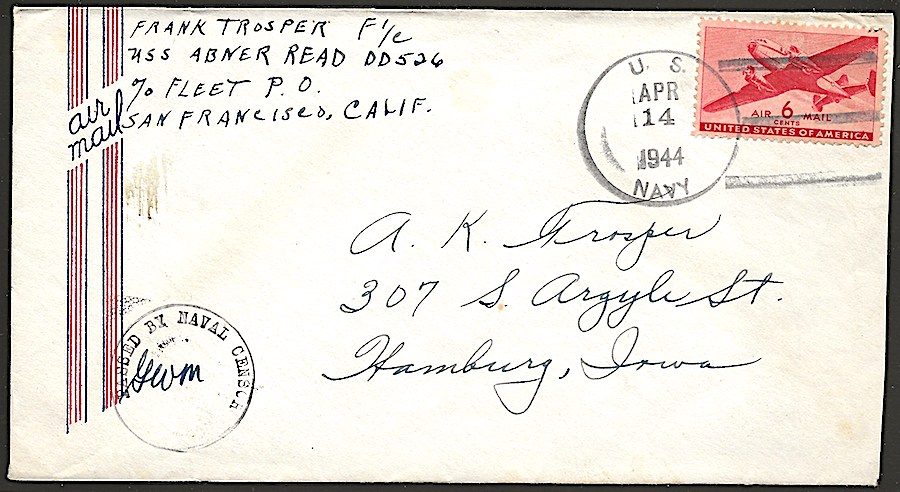 FRANK TROSPER F 1/c
USS ABNER READ DD526
℅ FLEET P. O.
SAN FRANCISCO, CALIF.
air
mail
U. S.
APR
14
1944
NAVY
AIR 6 MAIL
CENTS
UNITED STATES OF AMERICA
A. K. Trosper
307 S. Argyle St.
Hamburg, Iowa
PASSED BY NAVAL CENSOR